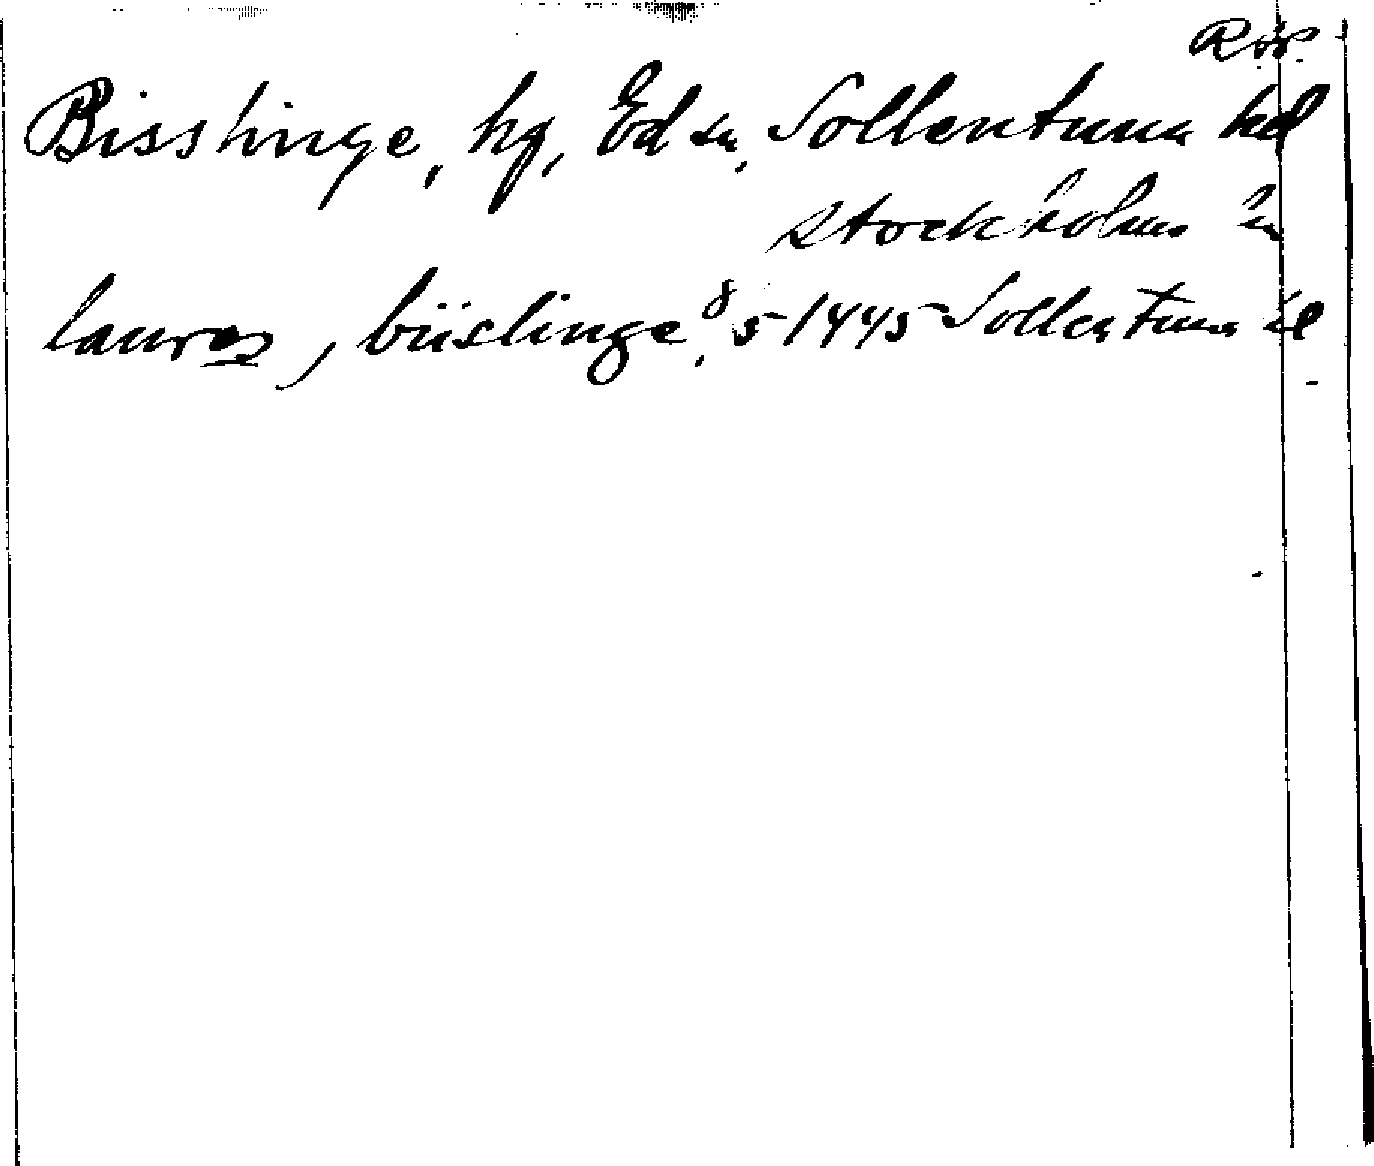 Bisslinge, hg, Ed sn, Sollentuna hd
Stockholms län
laures, biislinge, 8/5 1445 Sollentuna hd